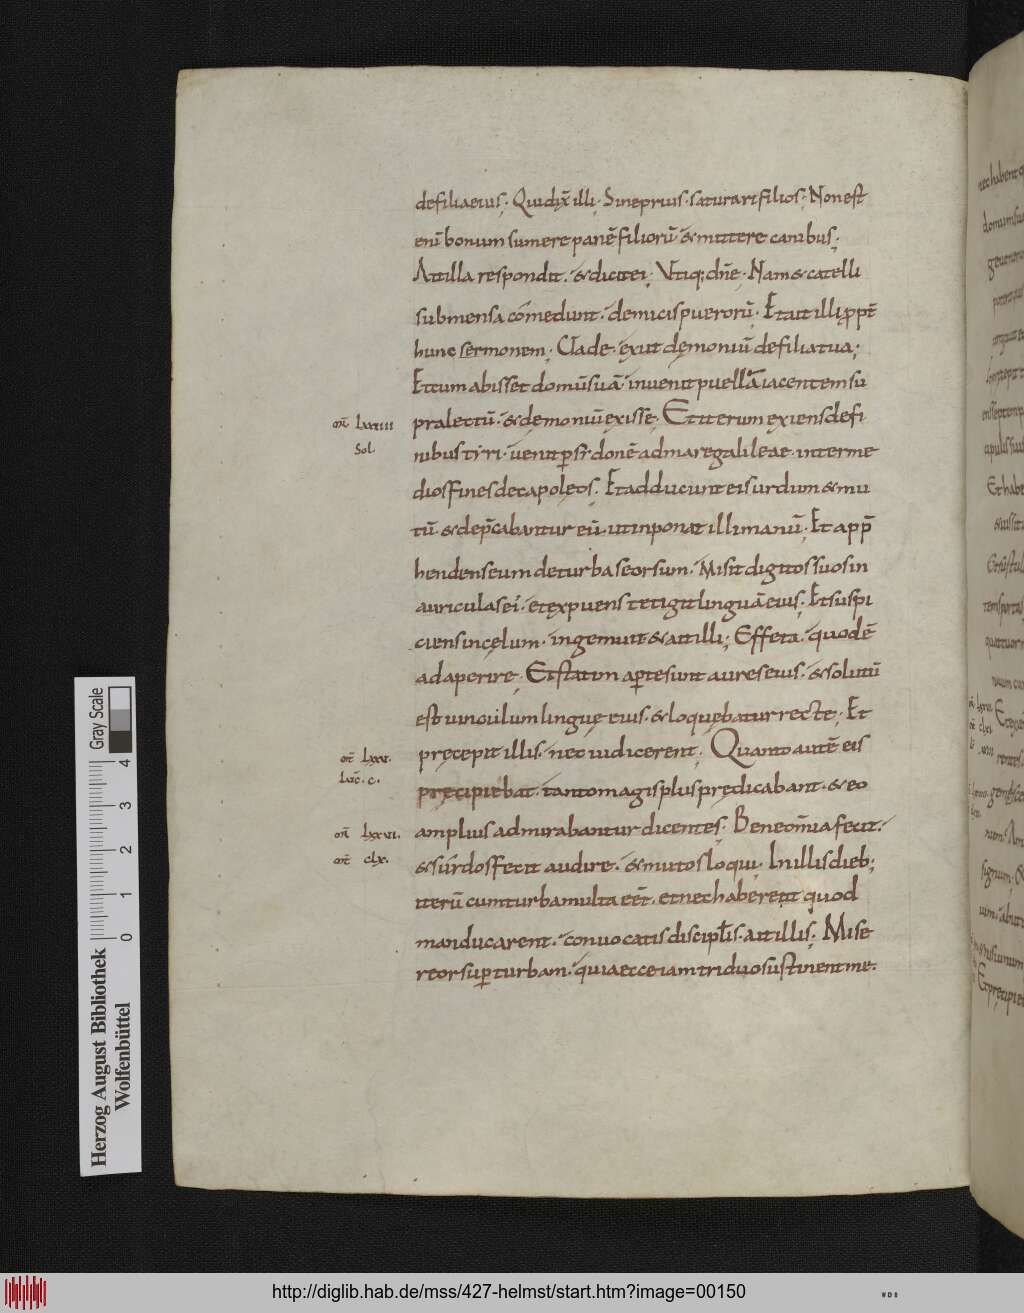 defilia eius; Quidix̄ illi; Sine prius saturari filios; Non est
enī bonum sumere panē filiorū & mittere canibus;
At illa respondit. & dicit ei; Utiq; dn̄e; Nam & catelli
sub mensa comedunt. de micis puerorū; Et ait illi; ꝓpt̄
hunc sermonem; Uade. exiit demoniū de filia tua;
Et cum abisset domū suā. inuenit puellā iacentem su
mr̄ lxxiiii
pra lectū. & demoniū exisse; Et iterum exiens de fi
Sol.
nibus tyri. uenit p̄ sydonē ad mare galileae. inter me
dios fines decapoleos; Et adducunt ei surdum & mu
tū. & dep̄cabantur eū. ut inponat illi manū; Et app̄
hendens eum de turba seorsum. Misit digitos suos in
auriculas ei'. et expuens tetigit linguā eius; Et suspi
ciens in cęlum. ingemuit & ait illi; Effeta. quod ē
adaperire; Et statim ap̄te sunt aures eius. & solutū
est uinculum linguę eius. & loquebatur recte; Et
mr̄ lxxv.
pręcepit illis. ne cui dicerent; Quanto autē eis
luc̄. c.
pręcipiebat. tanto magis plus prędicabant. & eo
mr̄ lxxvi.
amplius admirabantur dicentes; Bene om̄ia fecit.
mt̄ clx.
& surdos fecit audire. & mutos loqui; In illis dieb;
iterū cum turba multa eēt. et nec haberent quod
manducarent. conuocatis discipl̄is. ait illis; Mise
reor sup̄ turbam. quia ecce iam triduo sustinent me.
Herzog August Bibliothek
Wolfenbüttel
Gray Scale
0 1 2 3 4
http://diglib.hab.de/mss/427-helmst/start.htm?image=00150